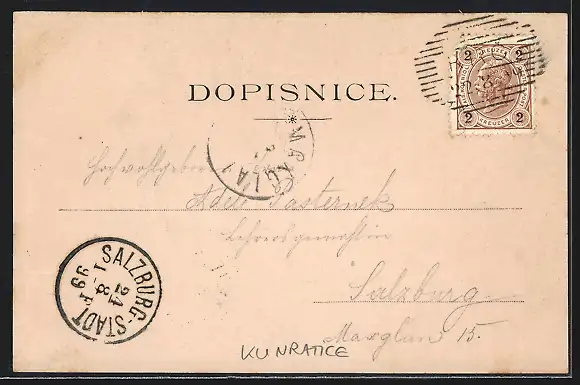 2 KREUZER 2
2 KREUZER 2
DOPISNICE.
Hochwohlgeboren
Adele Pasternek
Lehrersgemahlin
Salzburg
Maxglan 15.
SALZBURG-STADT
24
1 8
99 F
KUNRATICE